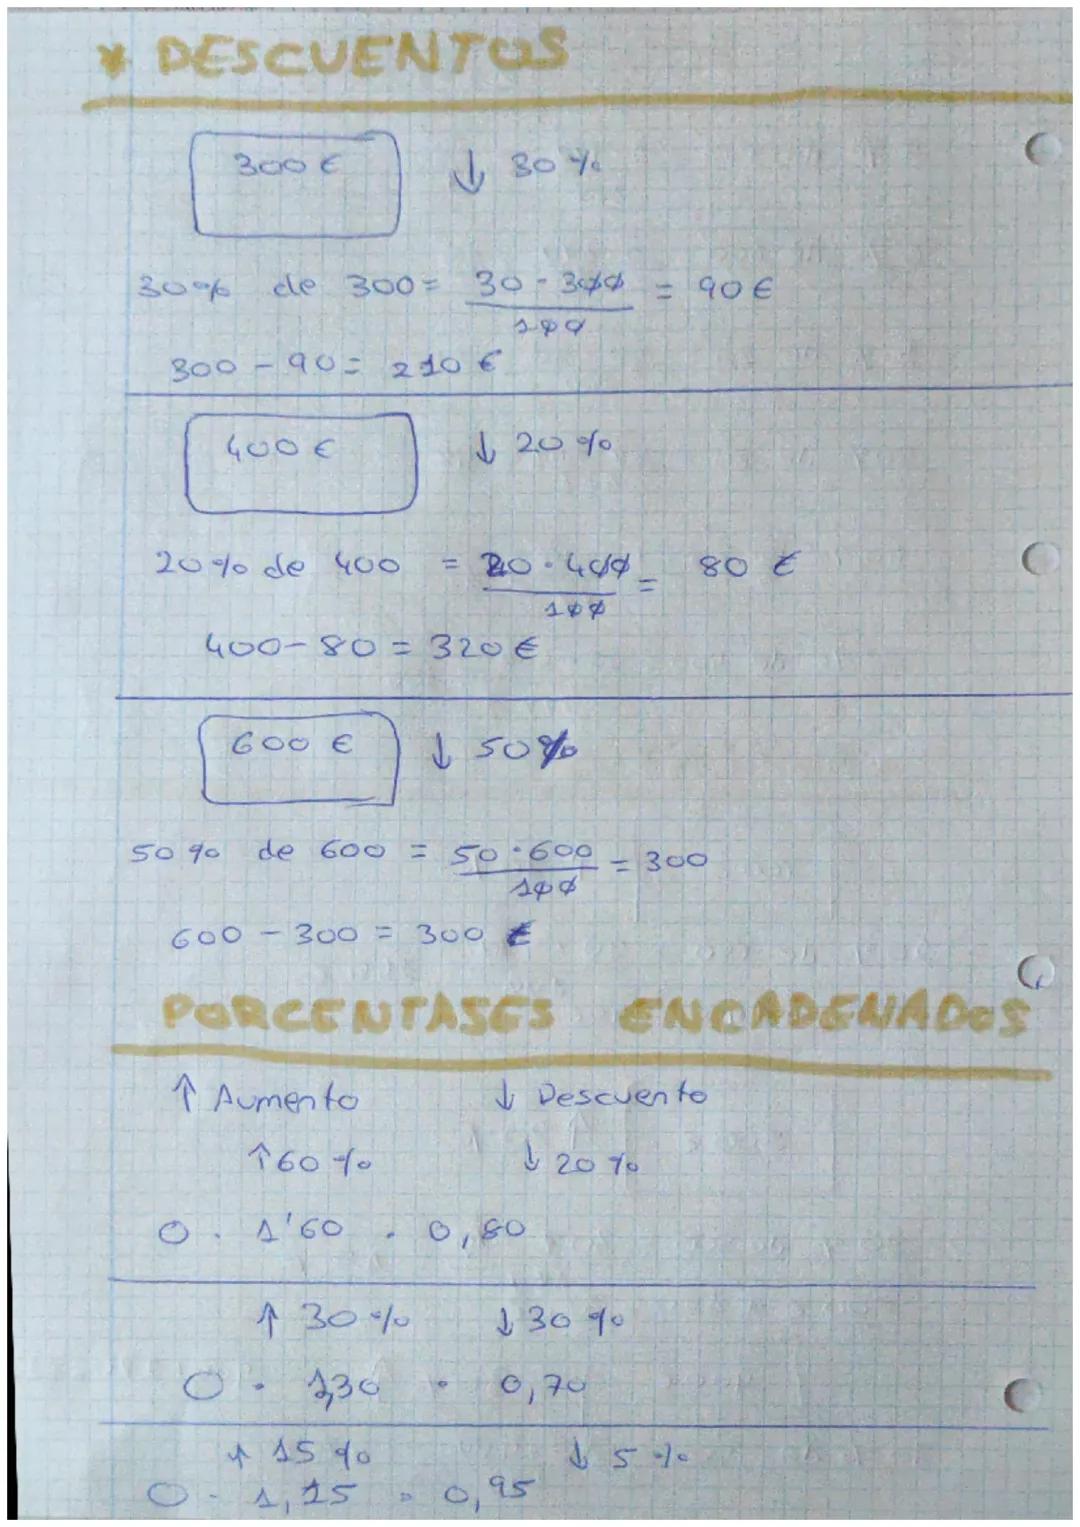 * DESCUENTOS
300 € ↓ 30 %
30% de 300 = 30 · 300 = 90 €
100
300 - 90 = 210 €
400 € ↓ 20 %
20% de 400 = 20 · 400 = 80 €
100
400 - 80 = 320 €
600 € ↓ 50%
50% de 600 = 50 · 600 = 300
100
600 - 300 = 300 €
PORCENTASES ENCADENADOS
↑ Aumento ↓ Descuento
↑ 60 % ↓ 20 %
O · 1'60 · 0,80
↑ 30 % ↓ 30 %
O · 1,30 · 0,70
↑ 15 % ↓ 5 %
O · 1,15 · 0,95